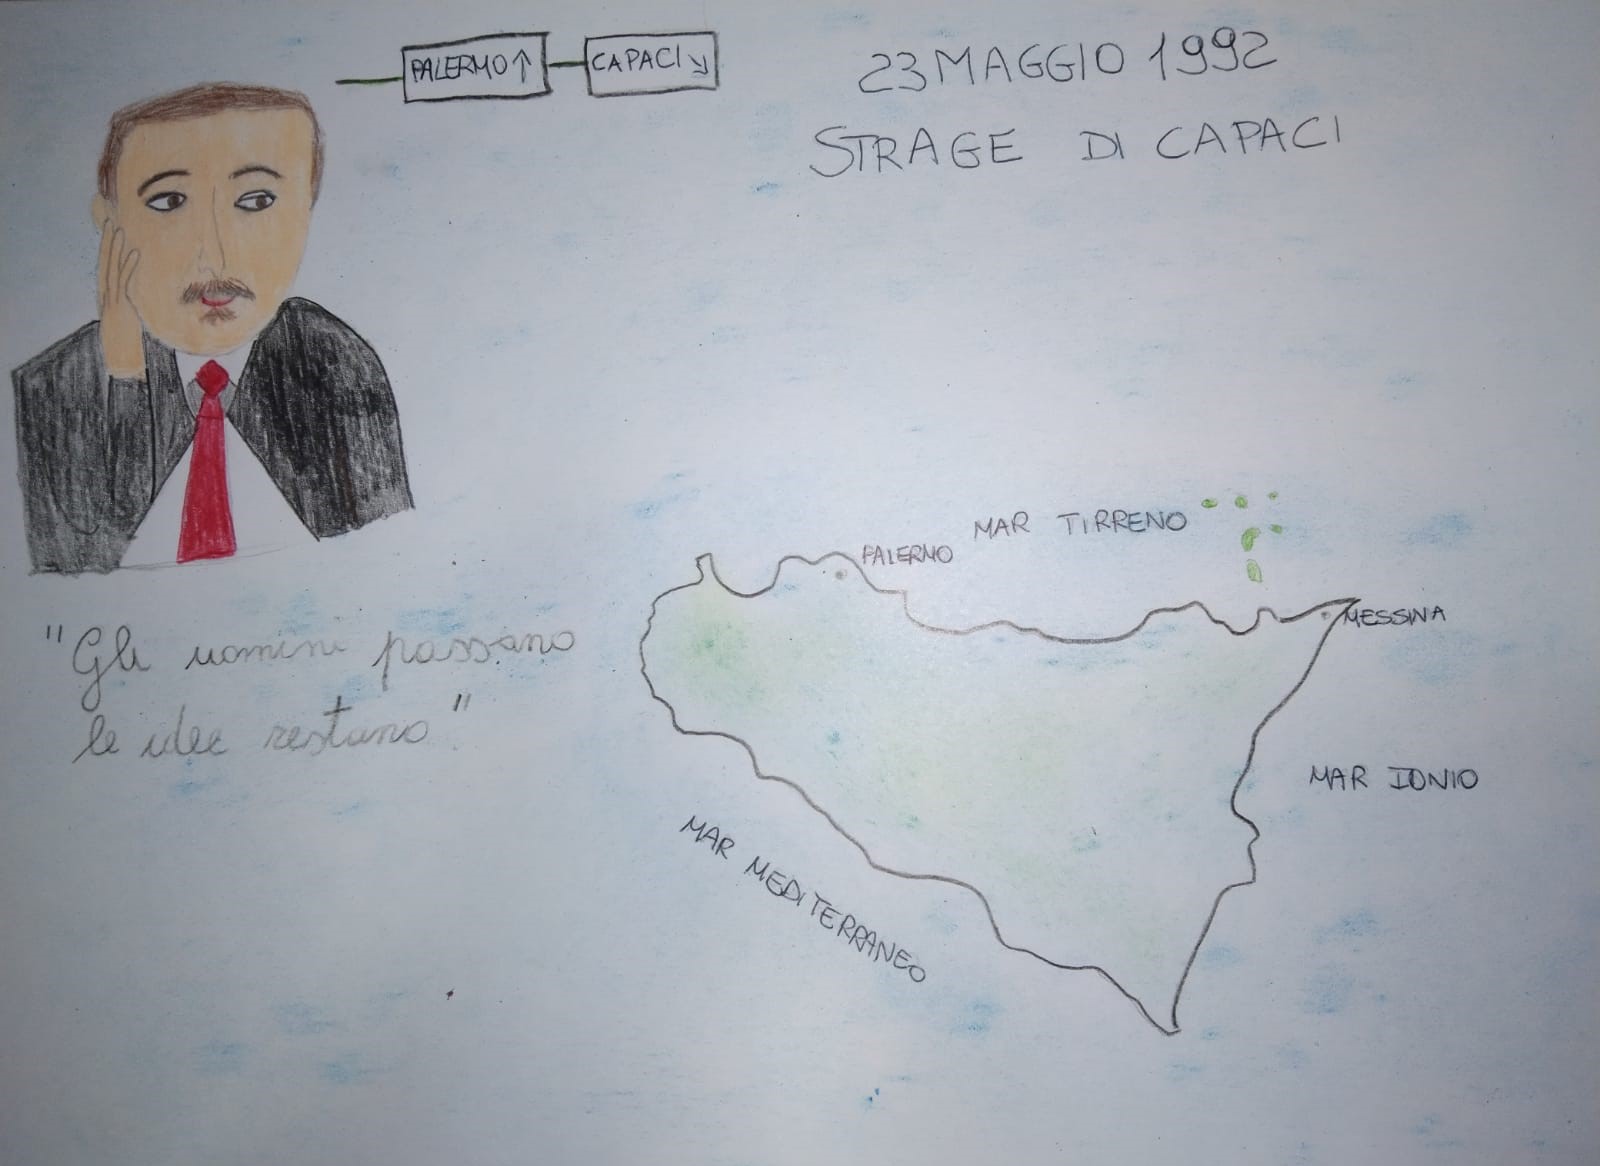 PALERMO↑ CAPACI↘
23 MAGGIO 1992
STRAGE DI CAPACI
MAR TIRRENO
PALERMO
MESSINA
"Gli uomini passano
le idee restano"
MAR IONIO
MAR MEDITERRANEO